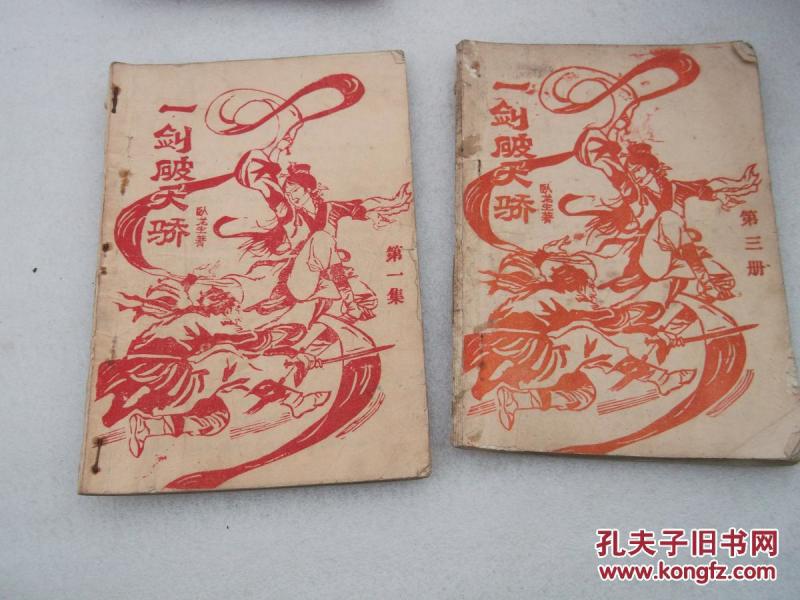 一剑破天骄
卧龙生著
第一集
一剑破天骄
卧龙生著
第三册
孔夫子旧书网
www.kongfz.com